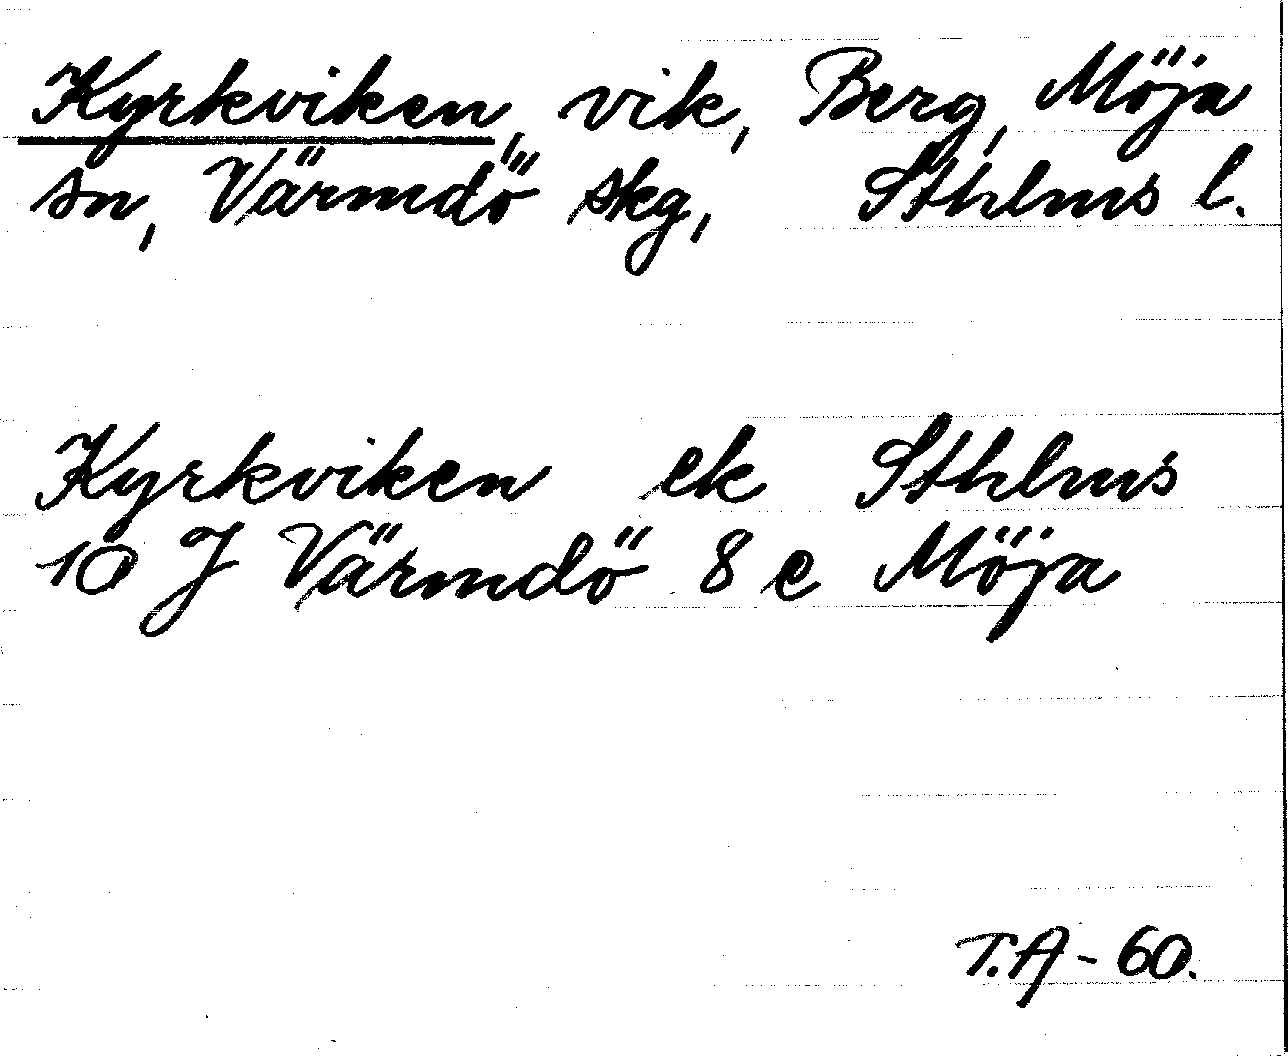 Kyrkviken, vik, Berg, Möja
sn, Värmdö skg, Sthlms l.
Kyrkviken ek Sthlms
10 J Värmdö 8 e Möja
T.A - 60.